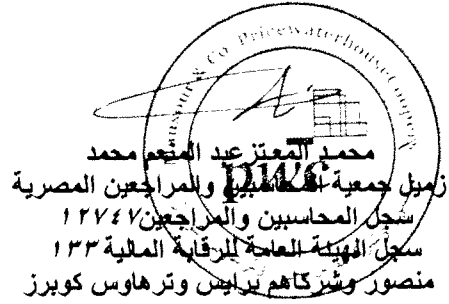 Mansour & Co. PricewaterhouseCoopers
pwc
محمد المعتز عبد المنعم محمد
زميل جمعية المحاسبين والمراجعين المصرية
سجل المحاسبين والمراجعين ١٢٧٤٧
سجل الهيئة العامة للرقابة المالية ١٣٣
منصور وشركاهم برايس وترهاوس كوبرز